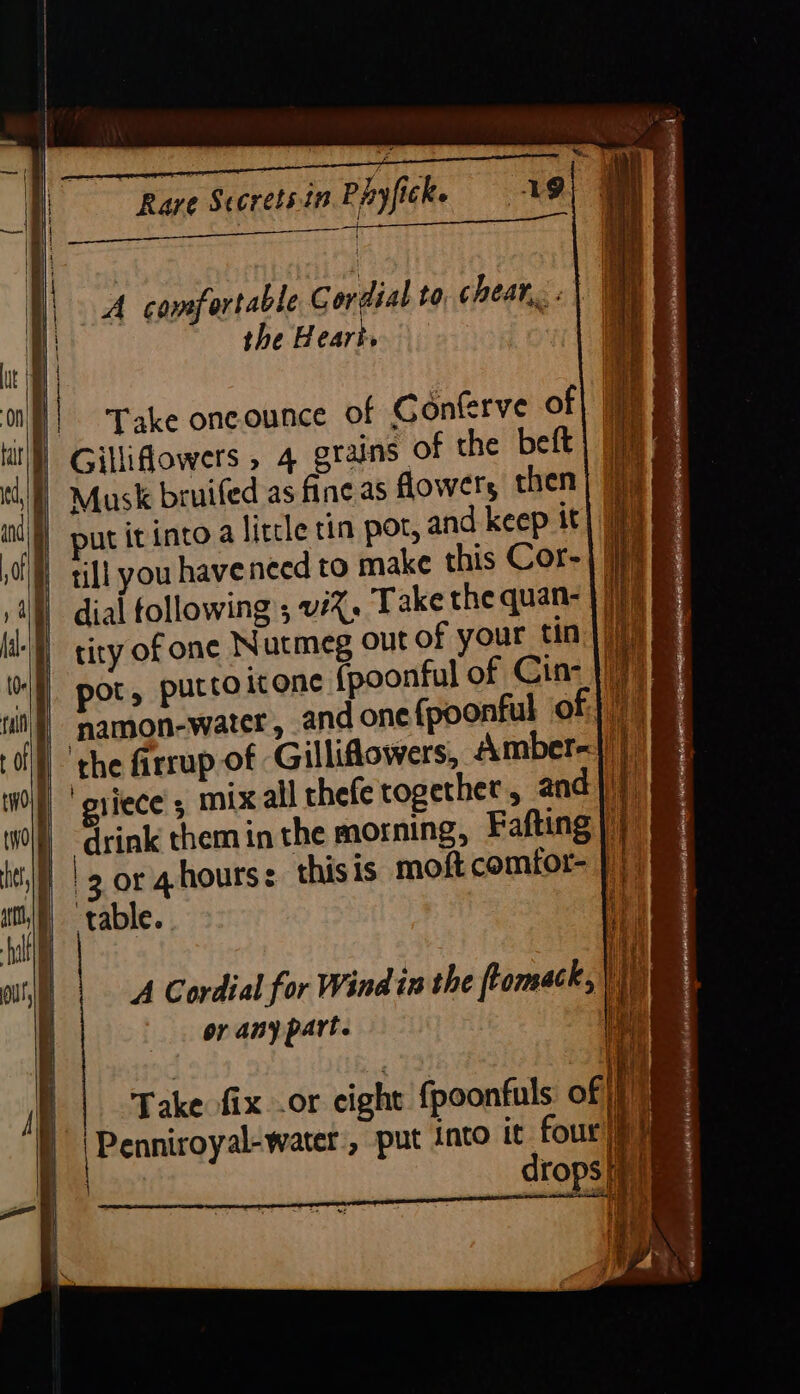 Rare Secrets in Phyſick. 19
A comfortable Cordial to chear
the Heart.
Take one ounce of Conſerve of
Gilliflowers, 4 grains of the beſt
Musk bruiſed as fine as flower, then
put it into a little tin pot, and keep it
till you have need to make this Cor-
dial following; viz. Take the quan-
tity of one Nutmeg out of your tin
pot, put to it one ſpoonful of Cin-
namon-water, and one ſpoonful of
the ſirrup of Gilliflowers, Amber-
griece; mix all theſe together, and
drink them in the morning, Faſting
3 or 4 hours: this is moſt comfor-
table.
A Cordial for Wind in the ſtomack,
or any part.
Take ſix or eight ſpoonfuls of
Penniroyal-water, put into it four
drops